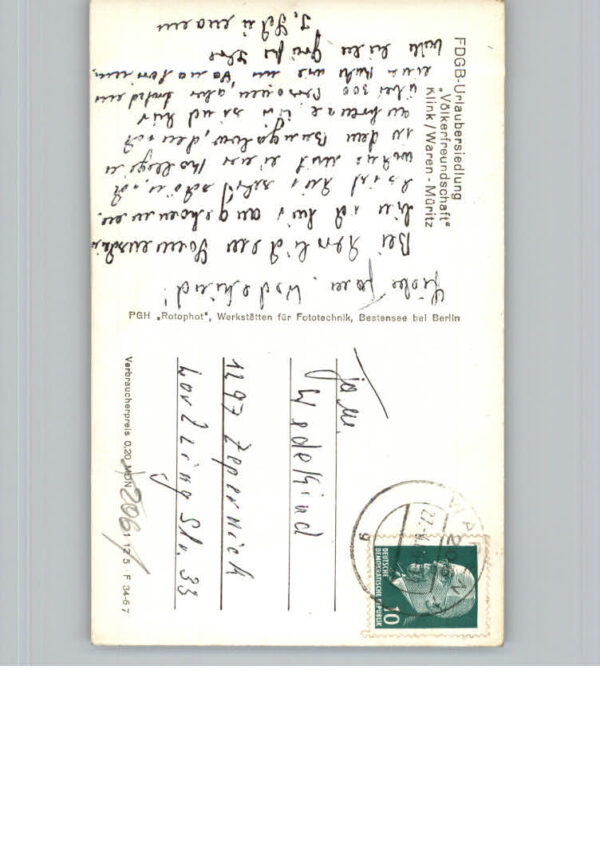 FDGB-Urlaubersiedlung
„Völkerfreundschaft"
Klink/Waren-Müritz
Liebe Fam. Wedekind!
Bei herrlichem Sonnenschein
bin ich hier angekommen.
Es ist hier sehr schön, ich
wohne mit einer Kollegin
in dem Bungalow, den ich
ankreuze
über 300 Personen, aber
viele liebe Grüße Ihre
PGH „Rotophot", Werkstätten für Fototechnik, Bestensee bei Berlin
Fam.
Wedekind
1297 Zepernick
Lortzing Str. 33
Verbraucherpreis 0,20 MDN
1 12 5 · F 34-67
DEUTSCHE
DEMOKRATISCHE REPUBLIK
10
WAREN